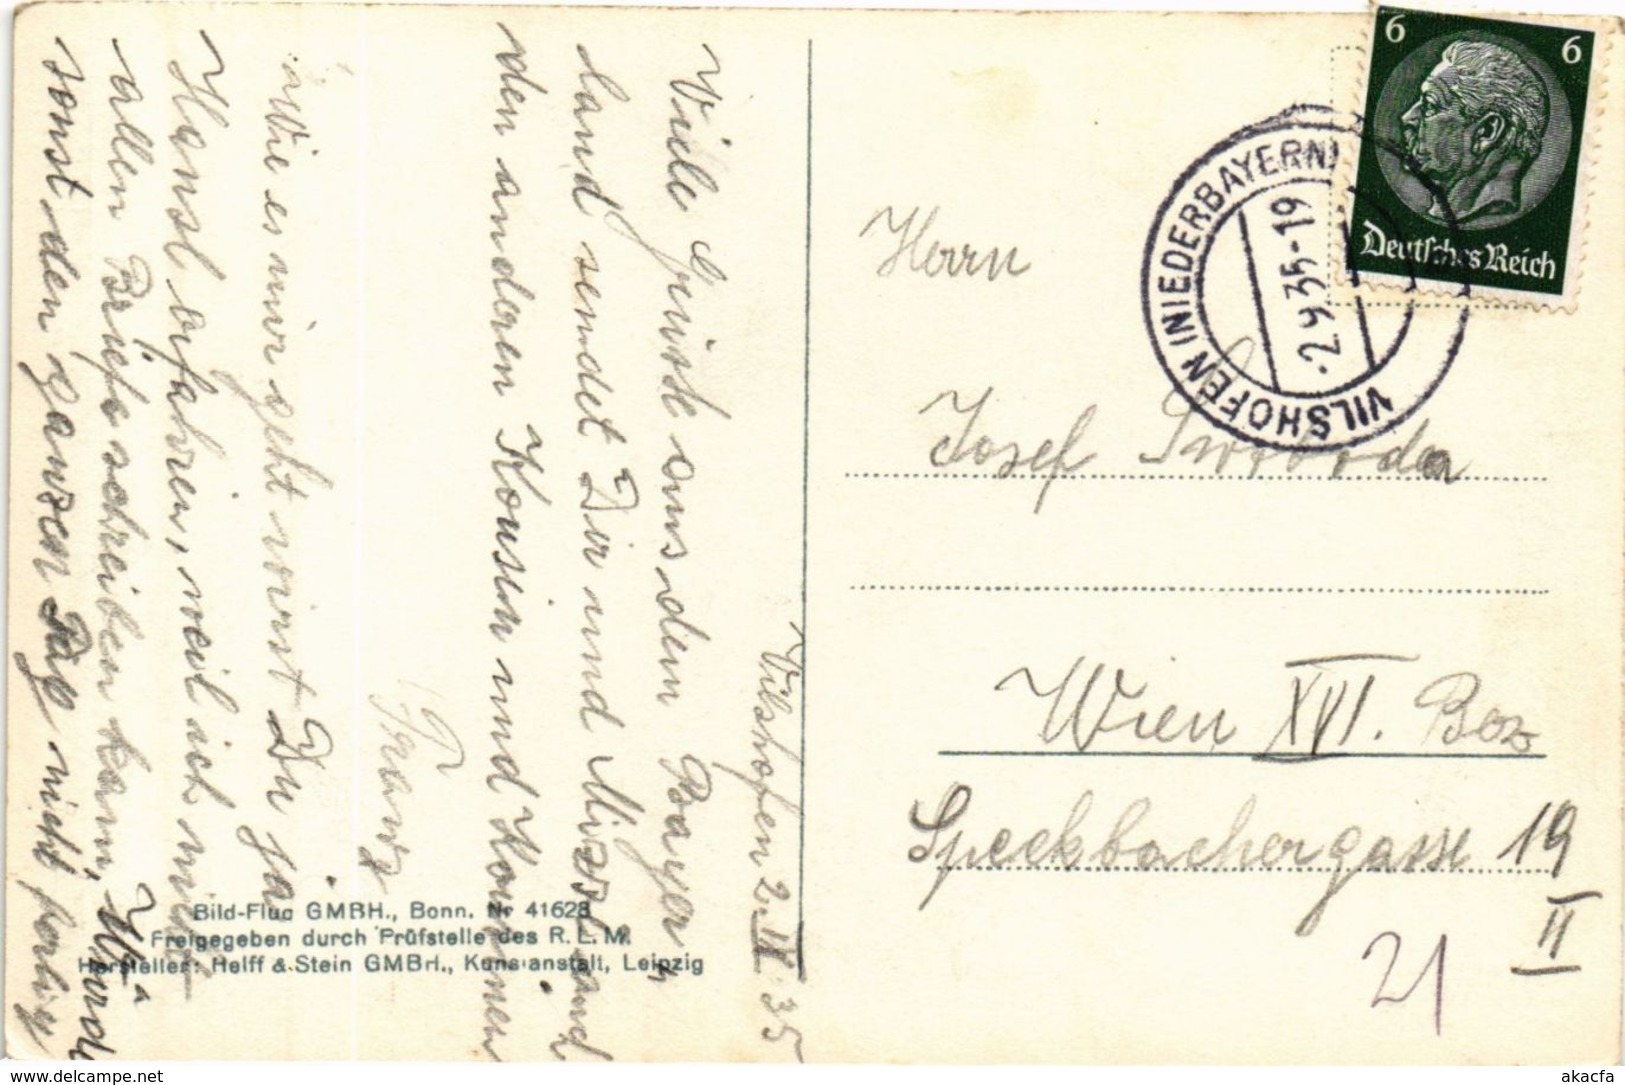 Vilshofen 2. IX. 35
Viele Grüße aus dem Bayer-
land sendet Dir und Mizzl und
den anderen Kousin und Kousinen
Franz
Wie es mir geht wirst Du ja
Hansl erfahren, weil ich nicht
allen Briefe schreiben kann, Würde
sonst den ganzen Tag nicht fertig
Bild-Flug GMBH., Bonn. Nr 41628
Freigegeben durch Prüfstelle des R. L. M.
Hersteller: Helff & Stein GMBH., Kunstanstalt, Leipzig
6 6
Deutsches Reich
VILSHOFEN (NIEDERBAYERN)
-2.9.35-19
Herrn
Josef Swoboda
Wien XVI. Bez
Speckbachergasse 19
II
21
www.delcampe.net
akacfa